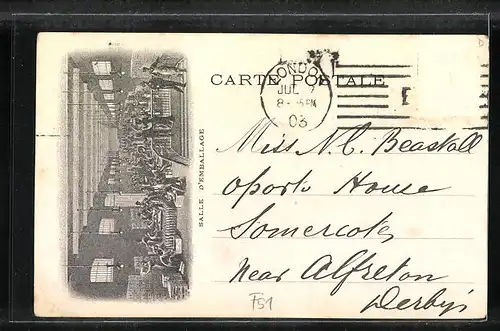 CARTE POSTALE
LONDON
JUL 7
8-15PM
03
E
SALLE D'EMBALLAGE
Miss N. C. Beastall
Oporto House
Somercotes
near Alfreton
Derbys
F51